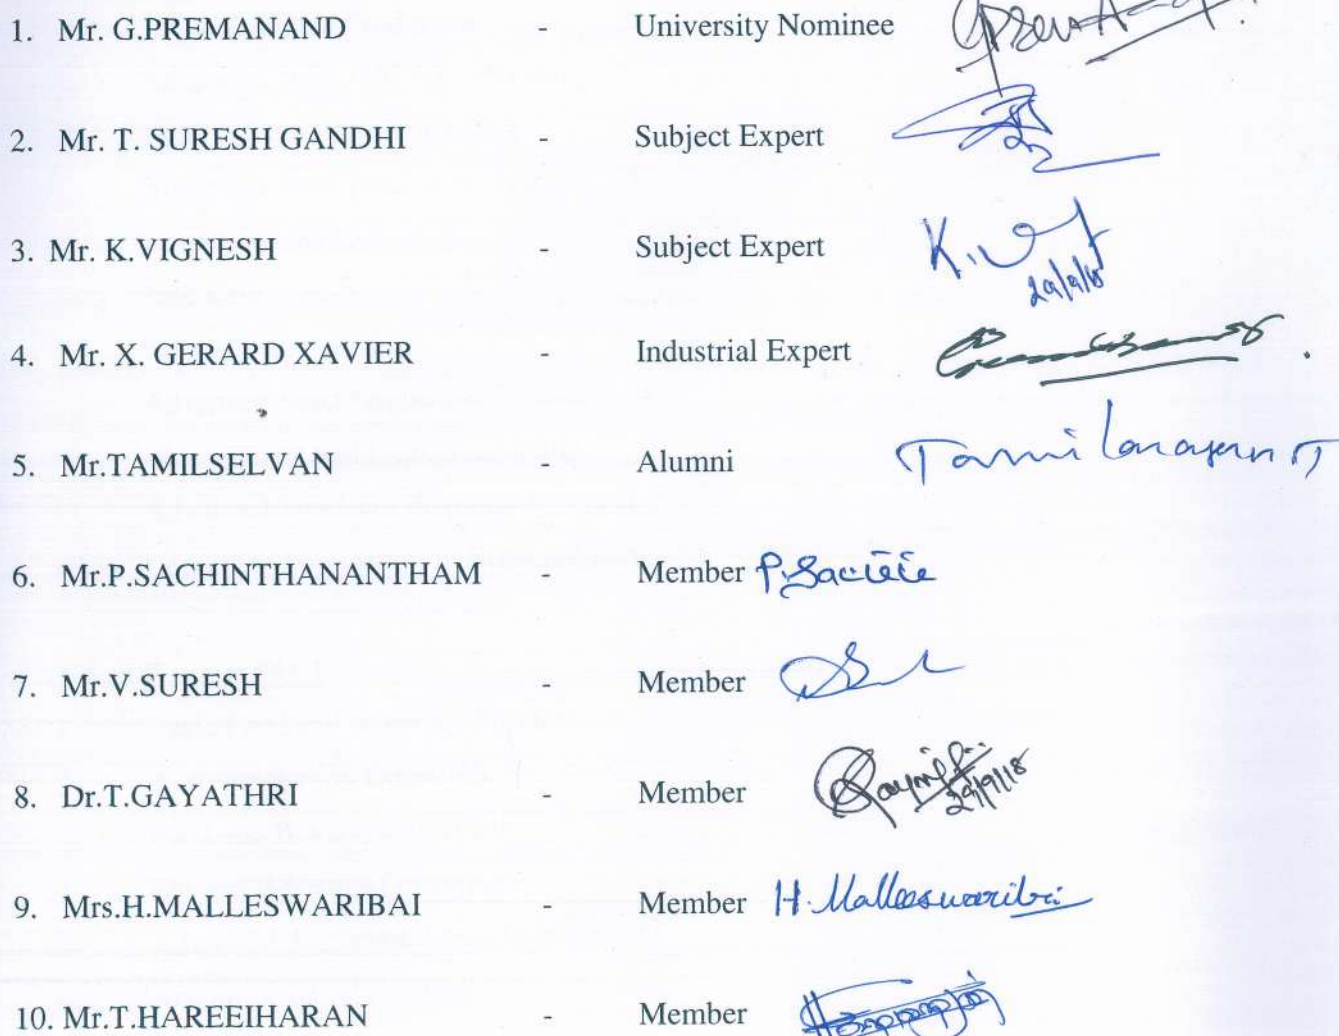 1. Mr. G.PREMANAND - University Nominee
2. Mr. T. SURESH GANDHI - Subject Expert
3. Mr. K.VIGNESH - Subject Expert K.V
29/9/18
4. Mr. X. GERARD XAVIER - Industrial Expert
5. Mr.TAMILSELVAN - Alumni
6. Mr.P.SACHINTHANANTHAM - Member
7. Mr.V.SURESH - Member
8. Dr.T.GAYATHRI - Member
29/9/18
9. Mrs.H.MALLESWARIBAI - Member H.Malleswaribai
10. Mr.T.HAREEIHARAN - Member